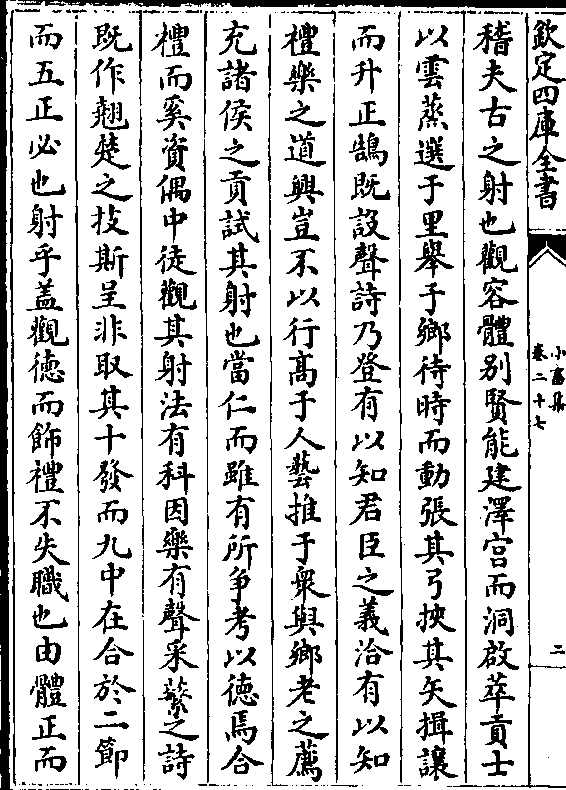 欽定四庫全書
小畜集
卷二十七
二
稽夫古之射也觀容體别賢能建澤宫而洞啟萃貢士
以雲蒸選于里舉于鄉待時而動張其弓挾其矢揖讓
而升正鵠既設聲詩乃登有以知君臣之義洽有以知
禮樂之道興豈不以行髙于人藝推于衆與鄉老之薦
充諸侯之貢試其射也當仁而雖有所爭考以德焉合
禮而奚資偶中徒觀其射法有科因樂有聲采蘩之詩
既作翹楚之技斯呈非取其十發而九中在合於二節
而五正必也射乎蓋觀德而飾禮不失職也由體正而